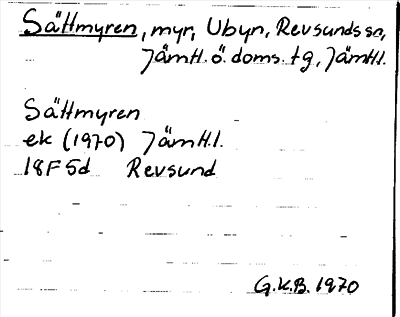 Sättmyren, myr, Ubyn, Revsunds sn,
Jämtl. ö. doms. tg, Jämtl.
Sättmyren
ek (1970) Jämtl.
18F5d Revsund
G.K.B. 1970